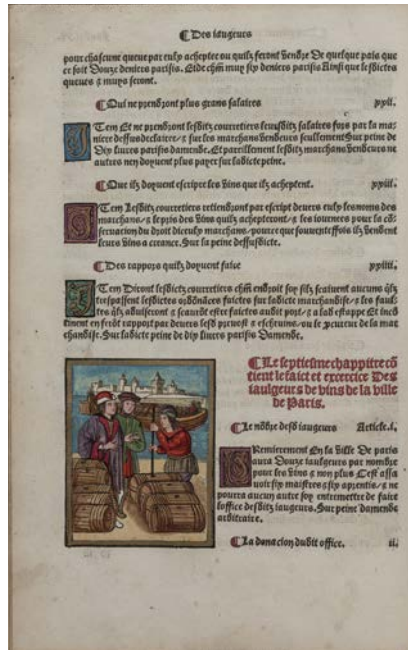 Des iaugeurs
pour chascune queue par eulx acheptee ou quilz feront vendre De quelque pais que
ce soit Douze deniers parisis. Et de chm̄ muy six deniers parisis Ainsi que lesdictes
queues & muys seront.
Qui ne prendront plus grans salaires xxii.
ITem Et ne prendront lesditz courretiers leursditz salaires fors par la ma-
niere dessusdeclairee / & sur les marchans vendeurs seullement Sur peine de
Dix liures parisis damende. Et pareillement lesditz marchans vendeurs ne
autres nen doyuent plus payer sur ladicte peine.
Que ilz doyuent escripre les vins que ilz acheptent. xxiii.
ITem Lesditz courretiers retiendront par escript deuers eulx les noms des
marchans / & le pris des vins quilz achepteront / & les iournees pour la cō-
seruacion du droit diceulx marchans / pource que souuenteffois ilz vendent
leurs vins a creance. Sur la peine dessusdicte.
Des rappors quilz doyuent faire xxiiii.
ITem Diront lesdictz courretiers chm̄ endroit soy silz scaiuent aucuns qlz
trespassent lesdictes ordōnāces faictes sur ladicte marchandise / & les faul-
tes qlz aduiseront & scaurōt estre faictes audit port / & a lad estappe Et inco
tinent en ferōt rapport par deuers lesd preuost & escheuins / ou le pcureur de la mar
chandise. Sur ladicte peine de dix liures parisis Damende.
Le septiesme chappitre cō
tient le faict et exercice Des
iaulgeurs de vins de la ville
de Paris.
Le nōbre desd iaugeurs Article.i.
PRemierement En la ville De paris
aura Douze iaulgeurs par nombre
pour les vins & non plus Cest assa
uoir six maistres & six aprentis / & ne
pourra aucun autre soy entremettre de faire
loffice desditz iaugeurs. Sur peine damende
arbitraire.
La donacion dudit office. ii.